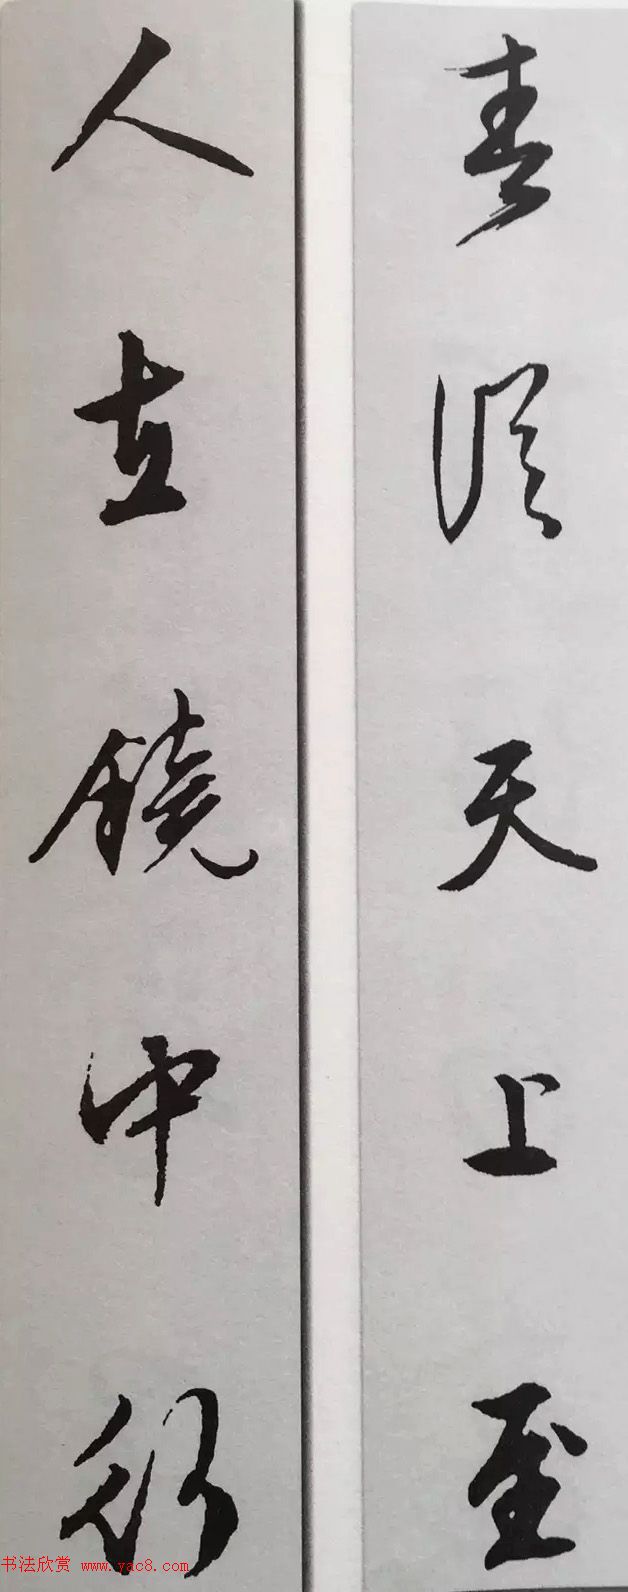 春從天上至
人在鏡中行
书法欣赏 www.yac8.com